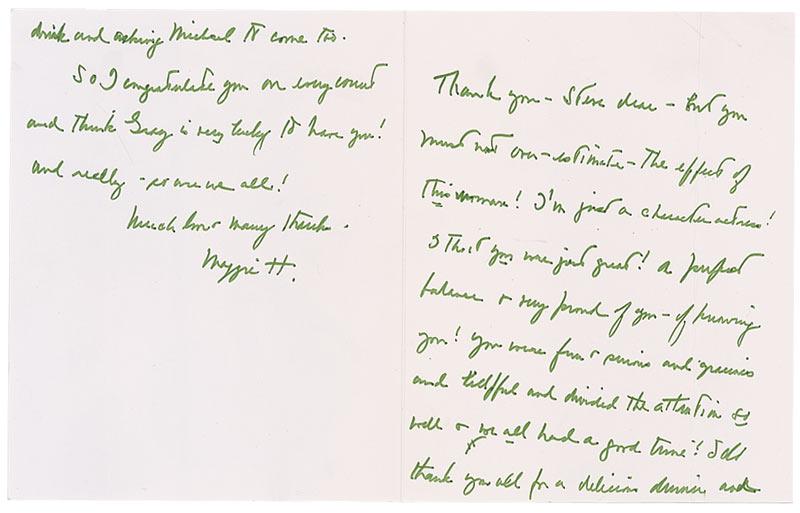 Thank you – Steve dear – but you
must not over-estimate – the effect of
this woman! I'm just a character actress!
I tho't you were just great! A perfect
balance & very proud of you – of knowing
you! You were fun & serious and gracious
and helpful and divided the attention so
well & we all had a good time! I
thank you all for a delicious dinner and
drink and asking Michael to come too.
So I congratulate you on every count
and think Gray is very lucky to have you!
and really – so are we all!
Much love & many thanks.
Maggie H.